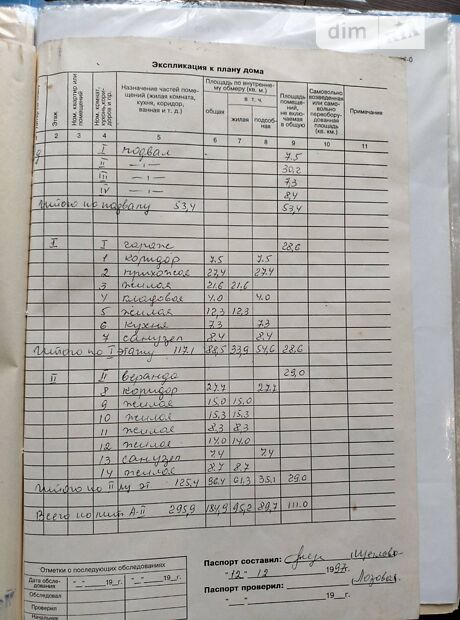 dim
Экспликация к плану дома
Этаж
Ном. квартир или помещений
Ном. комнат, кухонь, коридоров и пр.
Назначение частей помещений (жилая комната, кухня, коридор, ванная и т. д.)
Площадь по внутреннему обмеру (кв. м.)
в т. ч.
общая
жилая
подсобная
Площадь помещений, не включаемая в общую
Самовольно возведенная или самовольно переоборудованная площадь (кв. км.)
Примечание
2 3 4 5 6 7 8 9 10 11
I подвал 7.5
II —ı— 30,2
III —ı— 7,3
IV —ı— 8,4
Итого по подвалу 53,4 53,4
I I гараж 28,6
1 коридор 7.5 7.5
2 прихожая 27,4 27,4
3 жилая 21.6 21.6
4 кладовая 4.0 4.0
5 жилая 12,3 12,3
6 кухня 7.3 7.3
7 санузел 8,4 8,4
Итого по I этажу 117.1 88,5 33,9 54,6 28,6
II II веранда 29,0
8 коридор 27.7 27.7
9 жилая 15.0 15.0
10 жилая 15.3 15.3
11 жилая 8,3 8.3
12 жилая 14.0 14.0
13 санузел 7.4 7.4
14 жилая 8.7 8.7
Итого по II му эт 125.4 96.4 61.3 35.1 29.0
Всего по лит. А-II 295,9 184,9 95,2 89,7 111.0
Отметки о последующих обследованиях
Дата обследования "__"____19__г. "__"____19__г.
Обследовал
Проверил
Начальник
Паспорт составил:
"12" 12 1997
Паспорт проверил:
"__"________19__г.